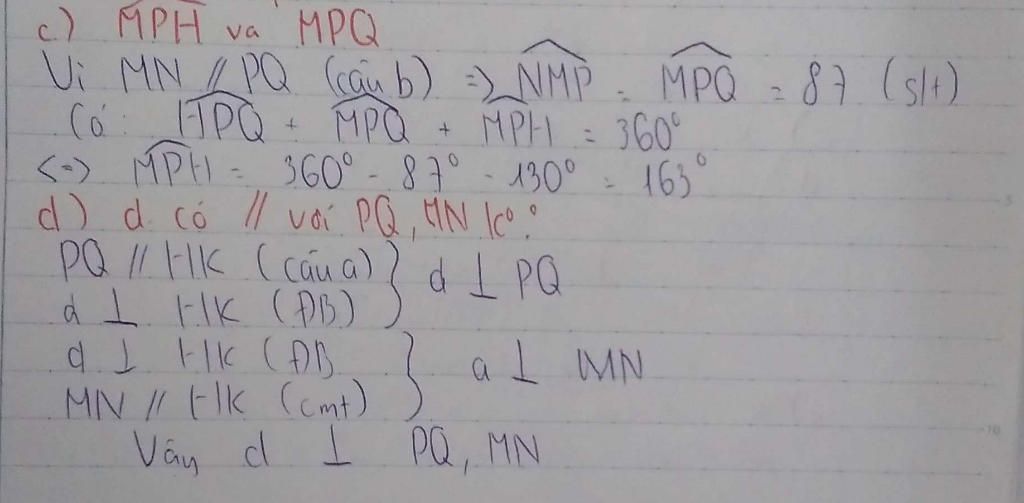 c) MPH va MPQ
Vì MN // PQ (câu b) => NMP = MPQ = 87 (slt)
Có: HPQ + MPQ + MPH = 360°
<=> MPH = 360° - 87° - 130° = 163°
d) d có // với PQ, MN k°?
PQ // HK (câu a) } d ⊥ PQ
d ⊥ HK (ĐB)
d ⊥ HK (ĐB } a ⊥ MN
MN // HK (cmt)
Vây d ⊥ PQ, MN